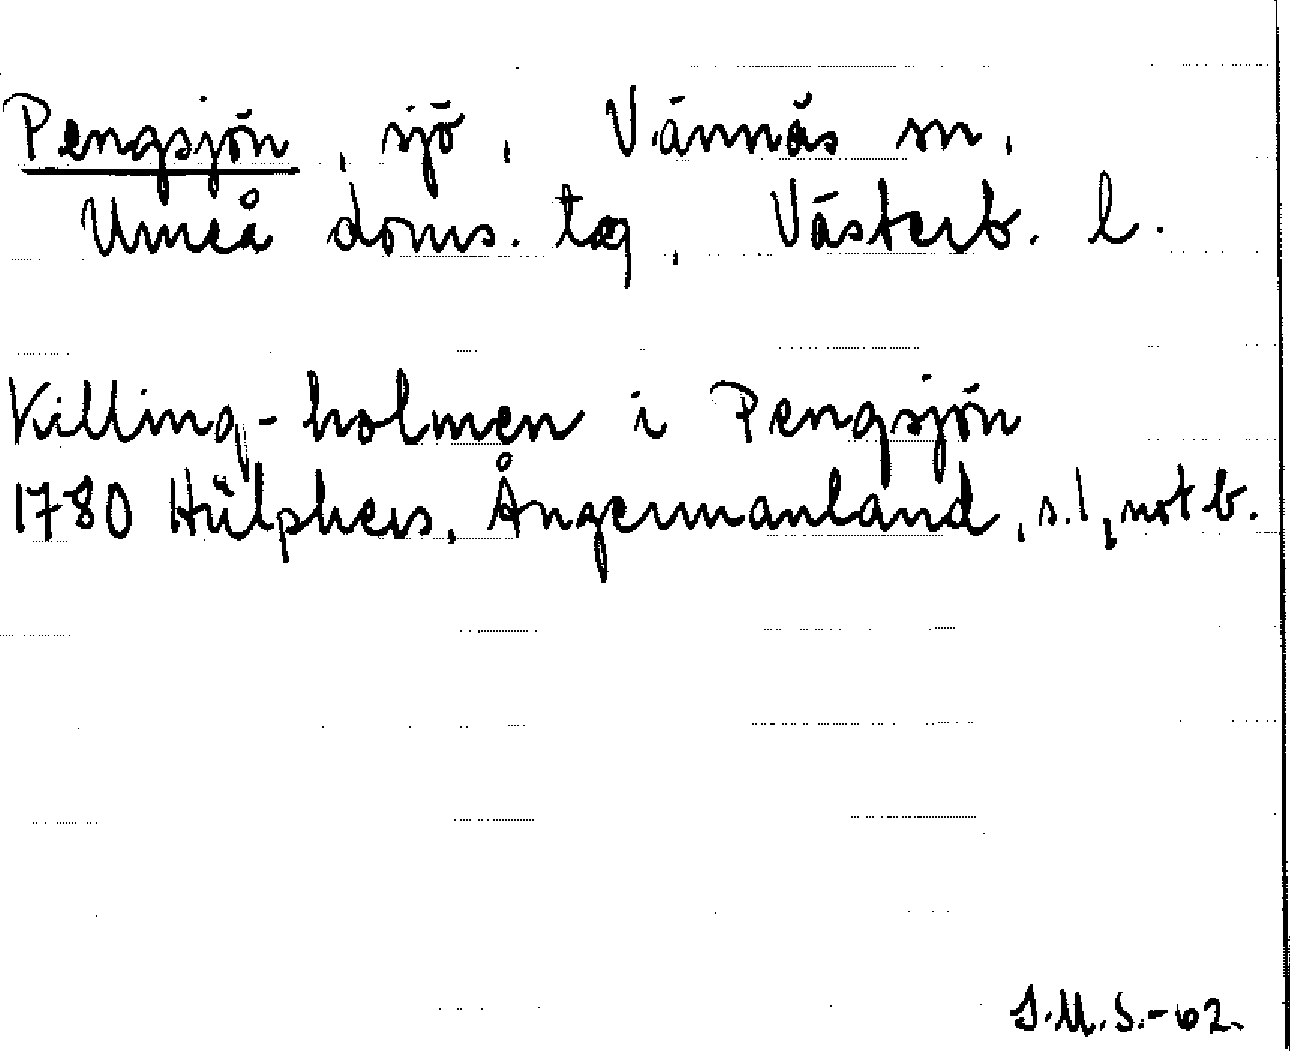 Pengsjön, sjö, Vännäs sn,
Umeå doms. tag, Västerb. l.
Killing-holmen i Pengsjön
1780 Hülphers, Ångermanland, s. 1, not b.
S.M.S.-62.